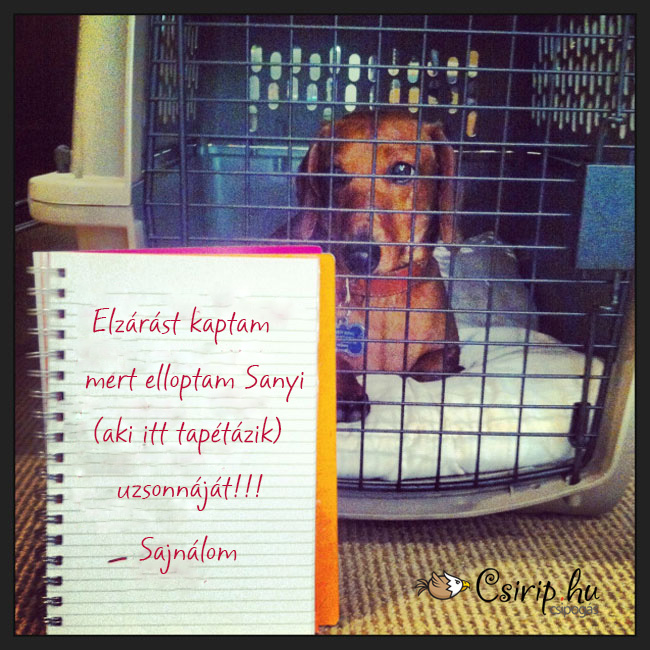 Elzárást kaptam
mert elloptam Sanyi
(aki itt tapétázik)
uzsonnáját!!!
– Sajnálom
Csirip.hu
csipogás